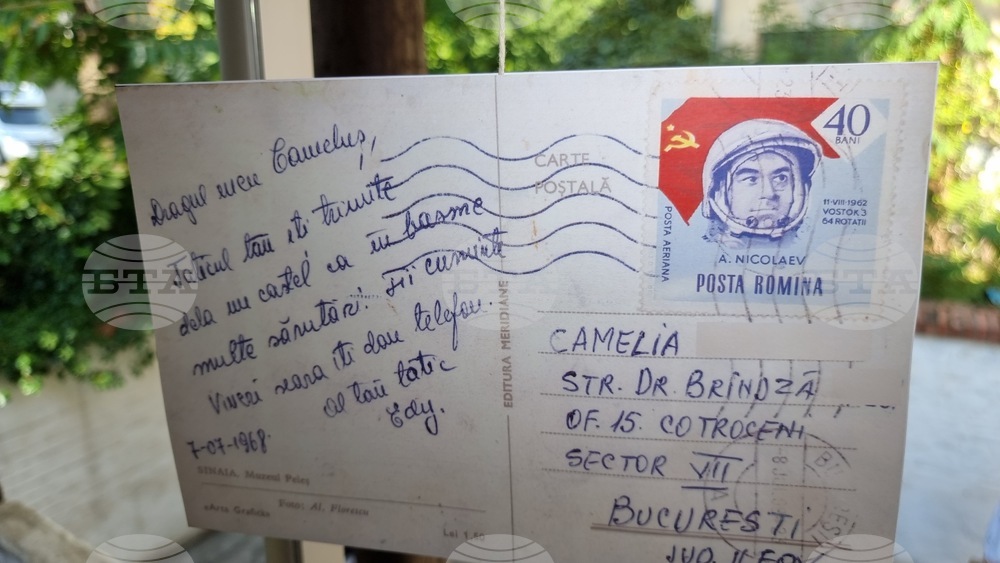 Dragul meu Cameluș,
Tăticul tău îți trimite
dela un castel ca în basme
multe sărutări. Fii cuminte
Vineri seara îți dau telefon.
Al tău tătic
Edy.
7-07-1968
SINAIA. Muzeul Peleș
Foto: Al. Florescu
«Arta Grafică»
Lei 1,60
EDITURA MERIDIANE
CARTE
POȘTALĂ
40
BANI
11·VIII·1962
VOSTOK 3
64 ROTATII
POSTA AERIANA
A. NICOLAEV
POSTA ROMINA
CAMELIA
STR. DR. BRÎNDZĂ
OF. 15. COTROCENI
SECTOR VIII
BUCUREȘTI
JUD. ILFOV
БТА